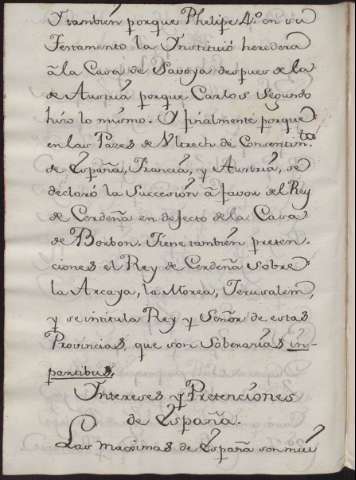 Y tambíén porque Phelipe 4.º en su
Testamento la Instituió heredera
â la Casa de Savoya despues de la
de Austria porque Carlos Segundo
hizo lo mismo. Y finalmente porque
en las Pazes de Utrech de Consentim.to
de España, Francia, y Austria, se
declaró la Succesión â favor del Rey
de Cerdeña en defecto de la Casa
de Borbon. Tiene también preten-
ciones el Rey de Cerdeña sobre
la Arcaya, la Morea, Jerusalem,
y se intitula Rey y Señor de estas
Provincias, que son Soberanías in-
partibus.
Intereses y Pretenciones
de España.
Las maximas de España son mui